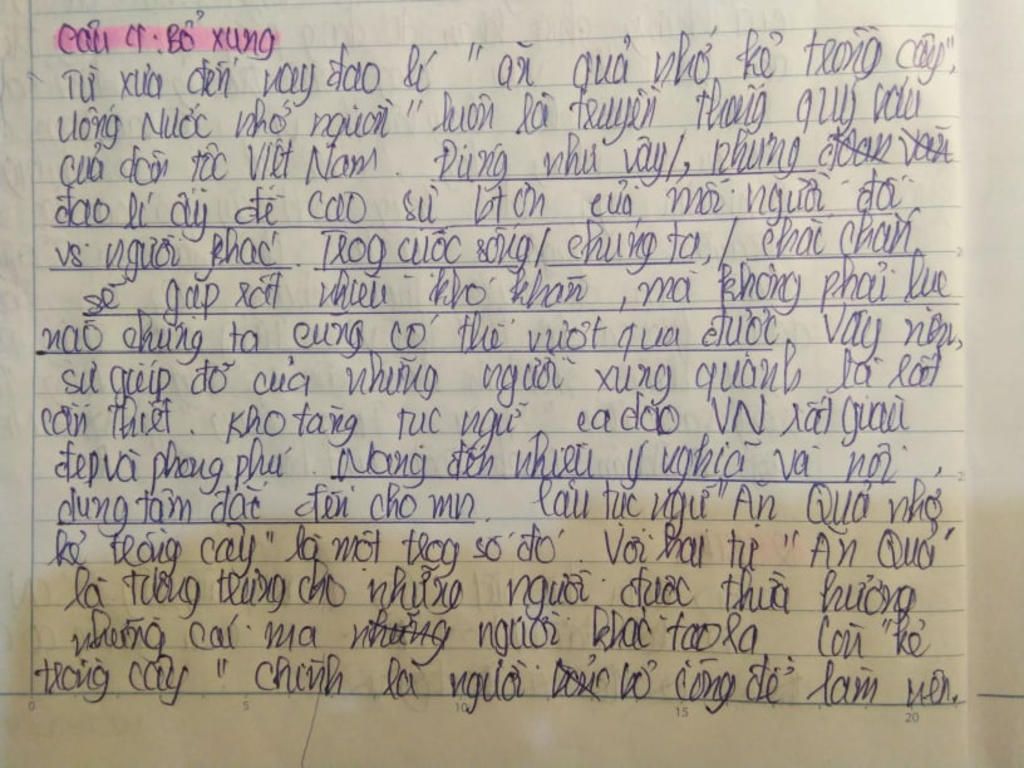 Câu 4: Bổ xung
Từ xưa đến nay đạo lí " ăn quả nhớ kẻ trồng cây",
uống nước nhớ nguồn " luôn là truyền thống quý báu
của dân tộc Việt Nam. Đúng như vậy, nhưng
đạo lí ấy đề cao sự bt ơn của mỗi người đối
vs người khác. Trog cuộc sống, chúng ta, chắc chắn
sẽ gặp rất nhiều khó khăn, mà không phải lúc
nào chúng ta cũng có thể vượt qua được. Vậy nên,
sự giúp đỡ của những người xung quành là rất
cần thiết. Kho tàng tục ngữ, ca dao VN rất giàu
đẹp và phong phú. Mang đến nhiều ý nghĩa và nội
dung tâm đắc đến cho mn. Câu tục ngữ "Ăn Quả nhớ
kẻ trồng cây" là một trog số đó. Với hai từ "Ăn Quả"
là tượng trưng cho những người được thừa hưởng
những cái mà người khác tạo ra. Còn "kẻ
trồng cây" chính là người bỏ công để làm nên.